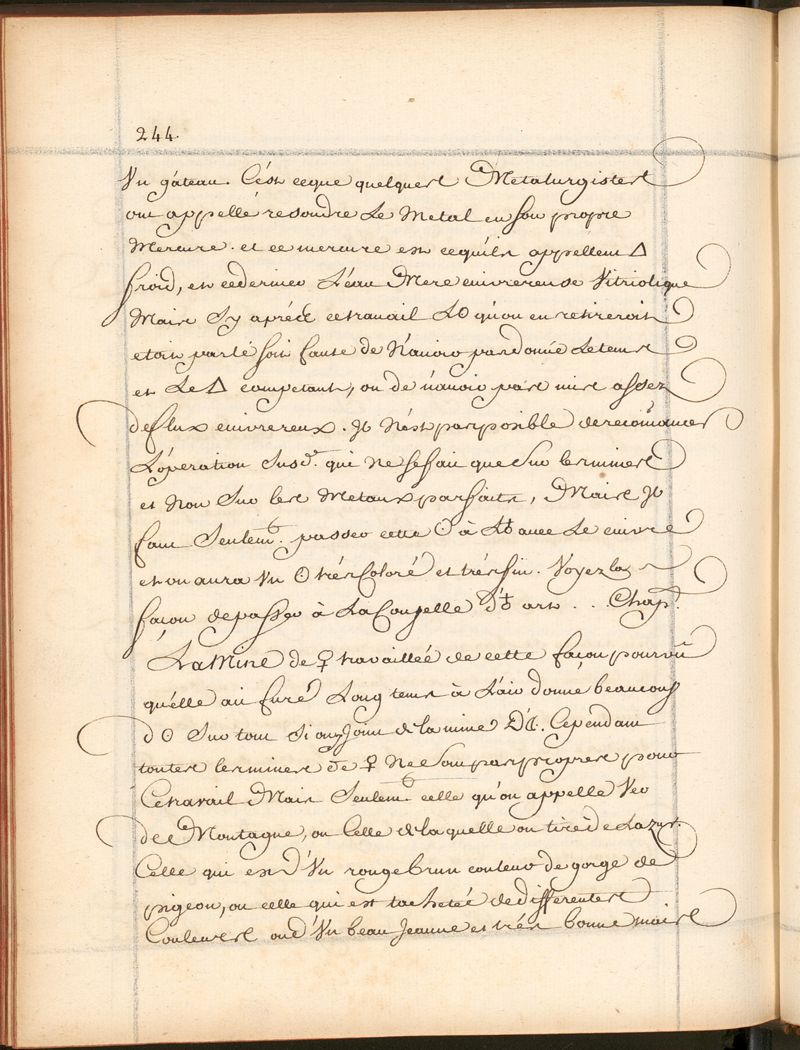 244.
Un gâteau. C'est ceque quelques Metalurgistes
ont appellé resoudre Le Metal en son propre
Mercure. et ce mercure est cequ'ils appellent △
froid, et cedernier L'eau Mere cuivreuse Vitriolique
Mais Sy aprés cetravail L☉ qu'on en retireroit
etoit parlé soit faute de N'avoir pas donné Letems
et Le △ competant, ou de n'avoir pas mis assez
deflux cuivreux. Il N'est pas possible derecommancer
L'operation Susd.e qui ne se fait que Sur les mines
et Non Sur les Metaux parfaits, Mais Il
faut Seulem.t passer cette ☉ à L♁ avec Le cuivre
et on aura Un ☉ trés Coloré et trés fin. Voyez la
façon depasser à La Coupelle d'♁ art . . Chap.
La Mine de ♀ travaillée de cette façon pourvû
qu'elle ait furé Long tems à L'air donne beaucoup
d ☉ Sur tout Si on y Joint de la mine D'☾. Cependant
toutes les mines de ♀ Ne Sont pas propres pour
Cetravail Mais Seulem.t celle qu'on appelle Ver
de Montagne, ou Celle de laquelle on tire de Lazur.
Celle qui est D'Un rouge brun couleur de gorge de
pigeon, ou celle qui est tachetée de differentes
Couleurs ou d'Un beau Jeaune et trés bonne mais